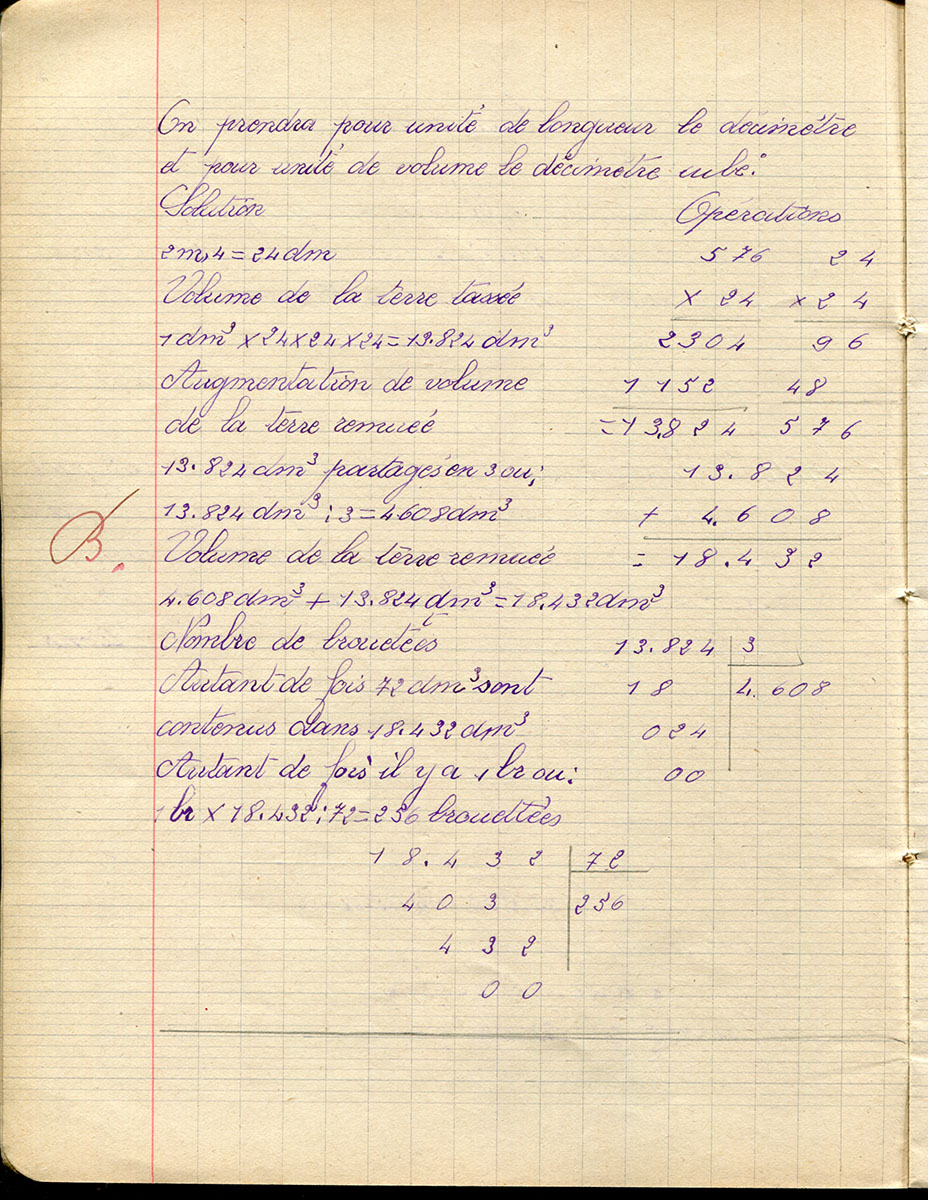 On prendra pour unité de longueur le décimètre
et pour unité de volume le décimètre cube.
Solution Opérations
2m,4 = 24dm 576 24
Volume de la terre tassée × 24 × 24
1 dm³ × 24 × 24 × 24 = 13.824 dm³ 2304 96
Augmentation de volume 1152 48
de la terre remuée = 13.824 576
13.824 dm³ partagés en 3 ou; 13.824
13.824 dm³ : 3 = 4608 dm³ + 4.608
B. Volume de la terre remuée = 18.432
4.608 dm³ + 13.824 dm³ = 18.432 dm³
Nombre de brouettées 13.824 3
Autant de fois 72 dm³ sont 18 4.608
contenus dans 18.432 dm³ 024
Autant de fois il y a 1 br ou: 00
1 br × 18.432 : 72 = 256 brouettées
18.432 72
403 256
432
00